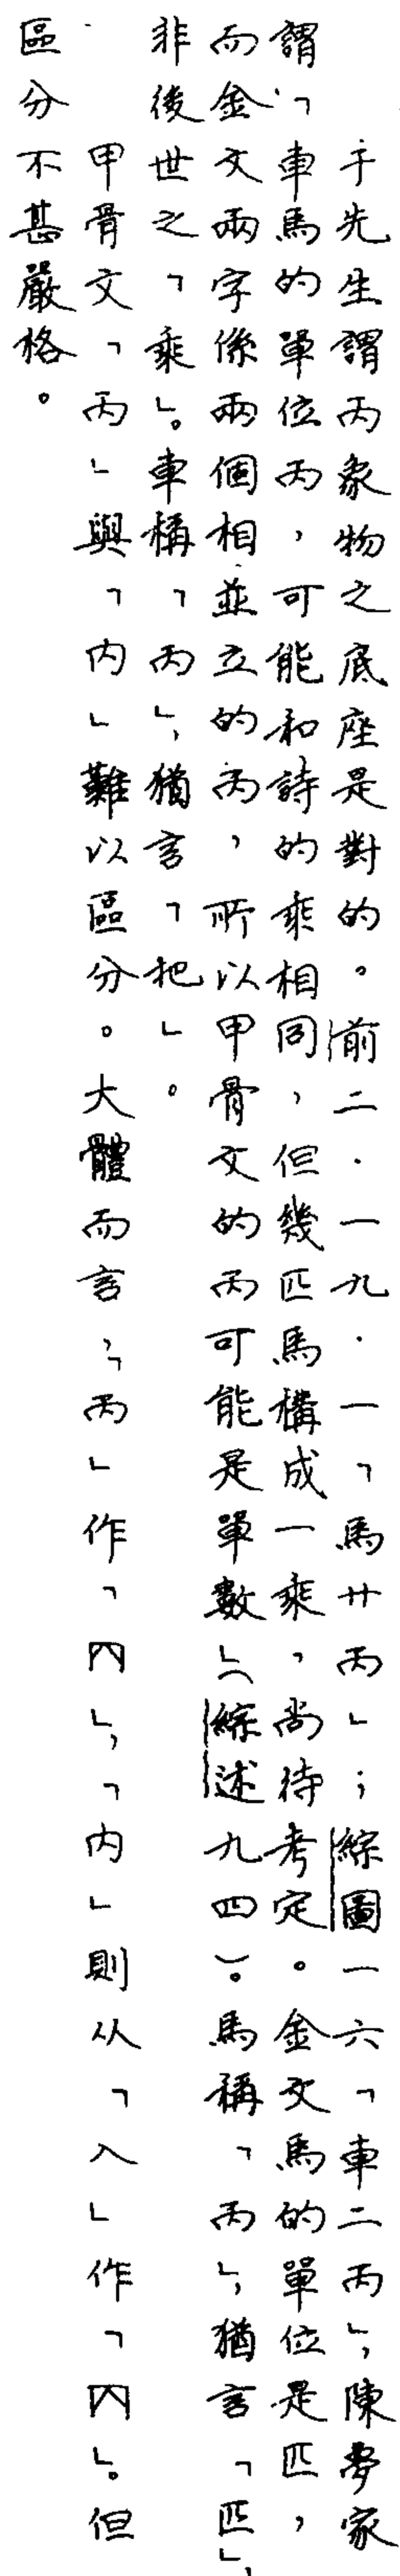 于先生謂丙象物之底座是對的。前二·一九·一「馬廿丙」；綜圖一六「車二丙」，陳夢家
謂「車馬的單位丙，可能和詩的乘相同，但幾匹馬構成一乘，尚待考定。金文馬的單位是匹，
而金文兩字係兩個相並立的丙，所以甲骨文的丙可能是單數」（綜述九四）。馬稱「丙」，猶言「匹」，
非後世之「乘」。車稱「丙」，猶言「把」。
甲骨文「丙」與「内」難以區分。大體而言，「丙」作「」，「内」則从「入」作「」。但
區分不甚嚴格。